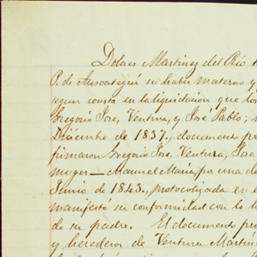 Dolores Martinez del Rio
P. de Ansoategui su haber materno y
segun consta en la liquidacion que los
Gregorio Jose, Ventura, y José Pablo;
Diciembre de 1837, documento pr
firmaron Gregorio Jose, Ventura, Jose
muger — Manuel Maria, por una de
Junio de 1843, protocolizada en e
manifestó su conformidad con la
de su padre. El documento pr
y herederos de Ventura Martin